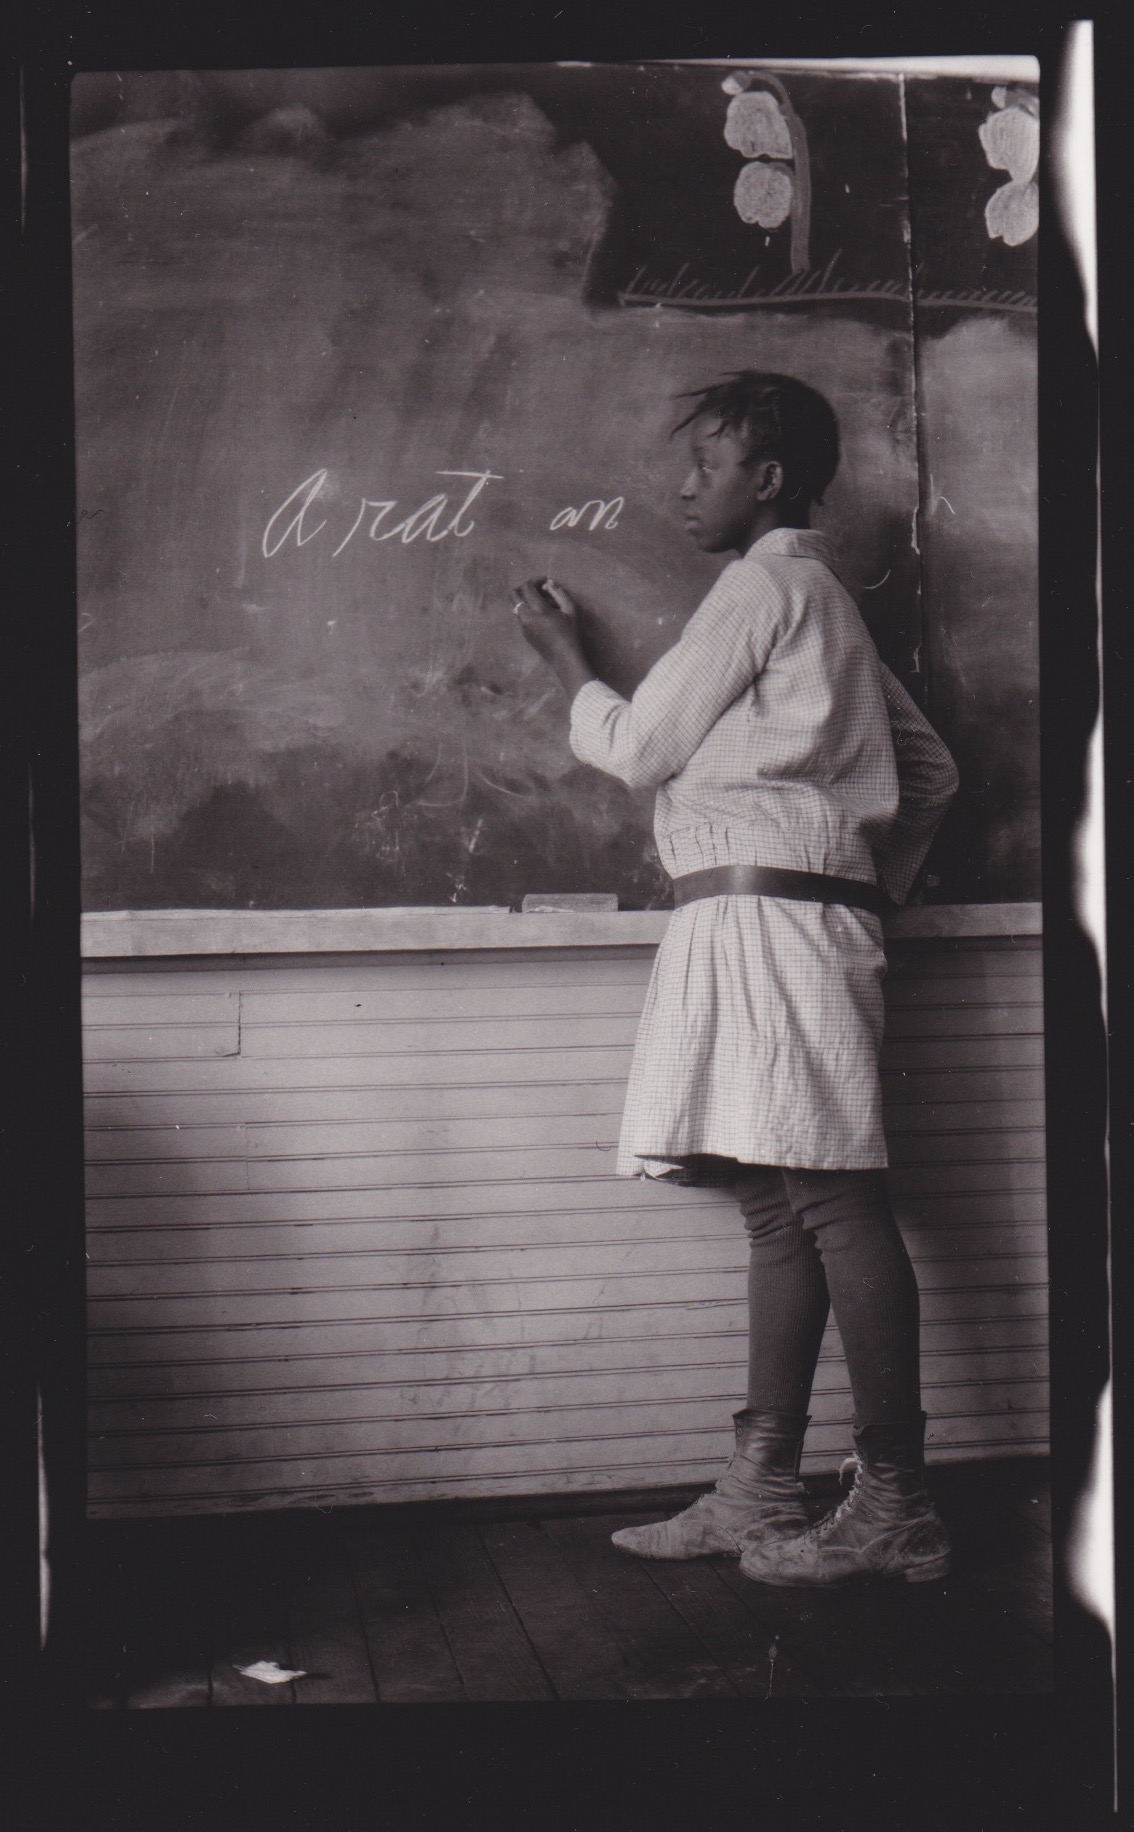 A rat an